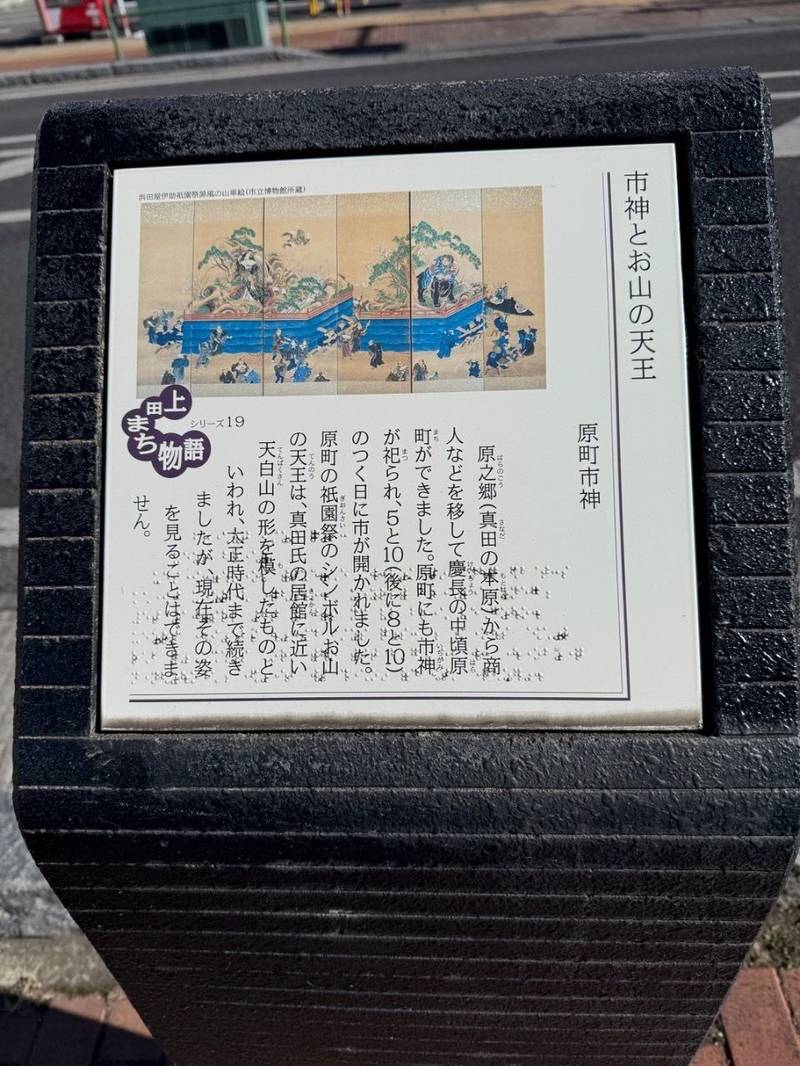 市神とお山の天王
原町市神
浜田屋伊助祇園祭屏風の山車絵(市立博物館所蔵)
原之郷(真田の本原)から商
人などを移して慶長の中頃原
町ができました。原町にも市神
が祀られ、5と10(後に8と10)
のつく日に市が開かれました。
原町の祇園祭のシンボルお山
の天王は、真田氏の居館に近い
天白山の形を模したものと
いわれ、大正時代まで続き
ましたが、現在その姿
を見ることはできま
せん。
上田
まち
物語
シリーズ19